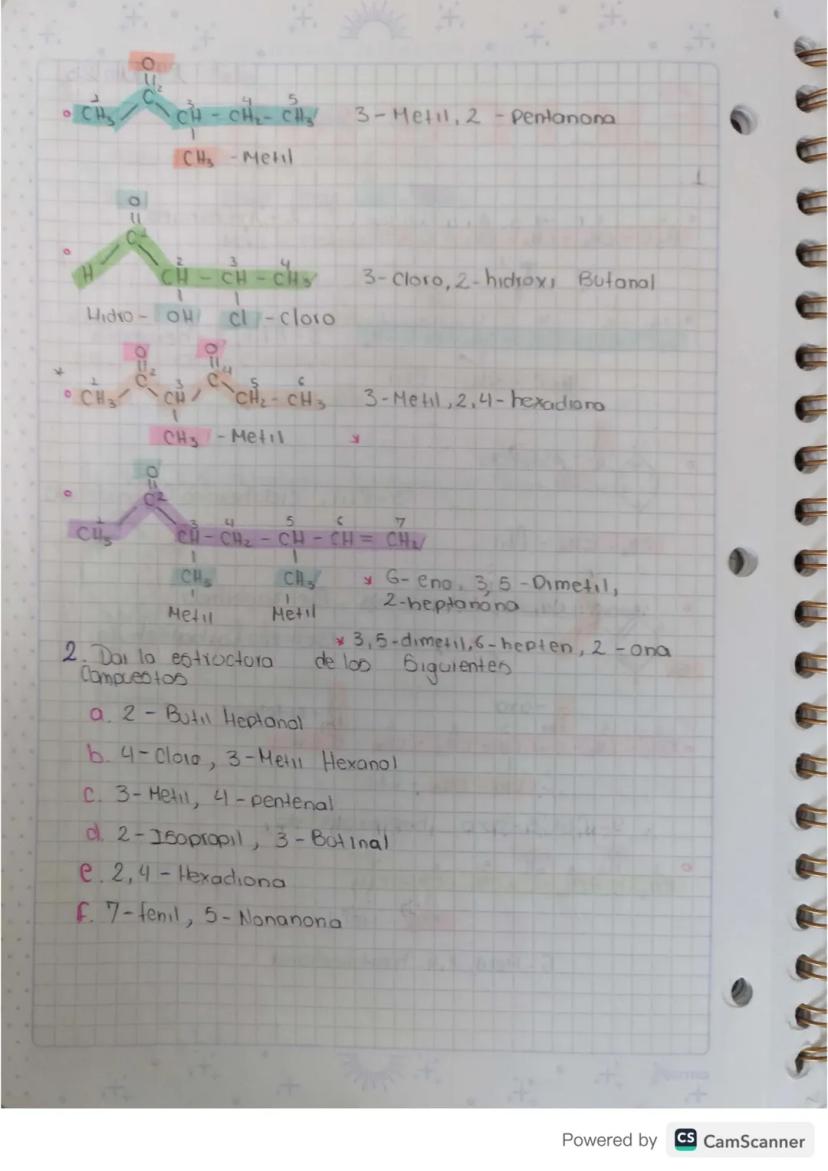 O
||
1 CH3 C2 3 CH - 4 CH2 - 5 CH3 3-Metil, 2 - pentanona
CH3 - Metil
1
O
||
C1
H 2 CH - 3 CH - 4 CH3 3-Cloro, 2-hidroxi Butanal
Hidro - OH Cl - cloro
O O
|| ||
* 1 CH3 C2 3 CH C4 5 CH2 - 6 CH3 3-Metil, 2,4-hexadiona
CH3 - Metil *
O
||
C2
1 CH3 3 CH - 4 CH2 - 5 CH - 6 CH = 7 CH2
CH3 CH3 * 6- eno, 3,5 -Dimetil,
Metil Metil 2-heptanona
* 3,5-dimetil,6-hepten, 2 -ona
2. Dar la estructura de los Siguientes
Compuestos
a. 2 - Butil Heptanal
b. 4-Cloro, 3-Metil Hexanal
c. 3-Metil, 4-pentenal
d. 2-Isopropil, 3-Butinal
e. 2,4-Hexadiona
f. 7-fenil, 5-Nonanona
Powered by CS CamScanner